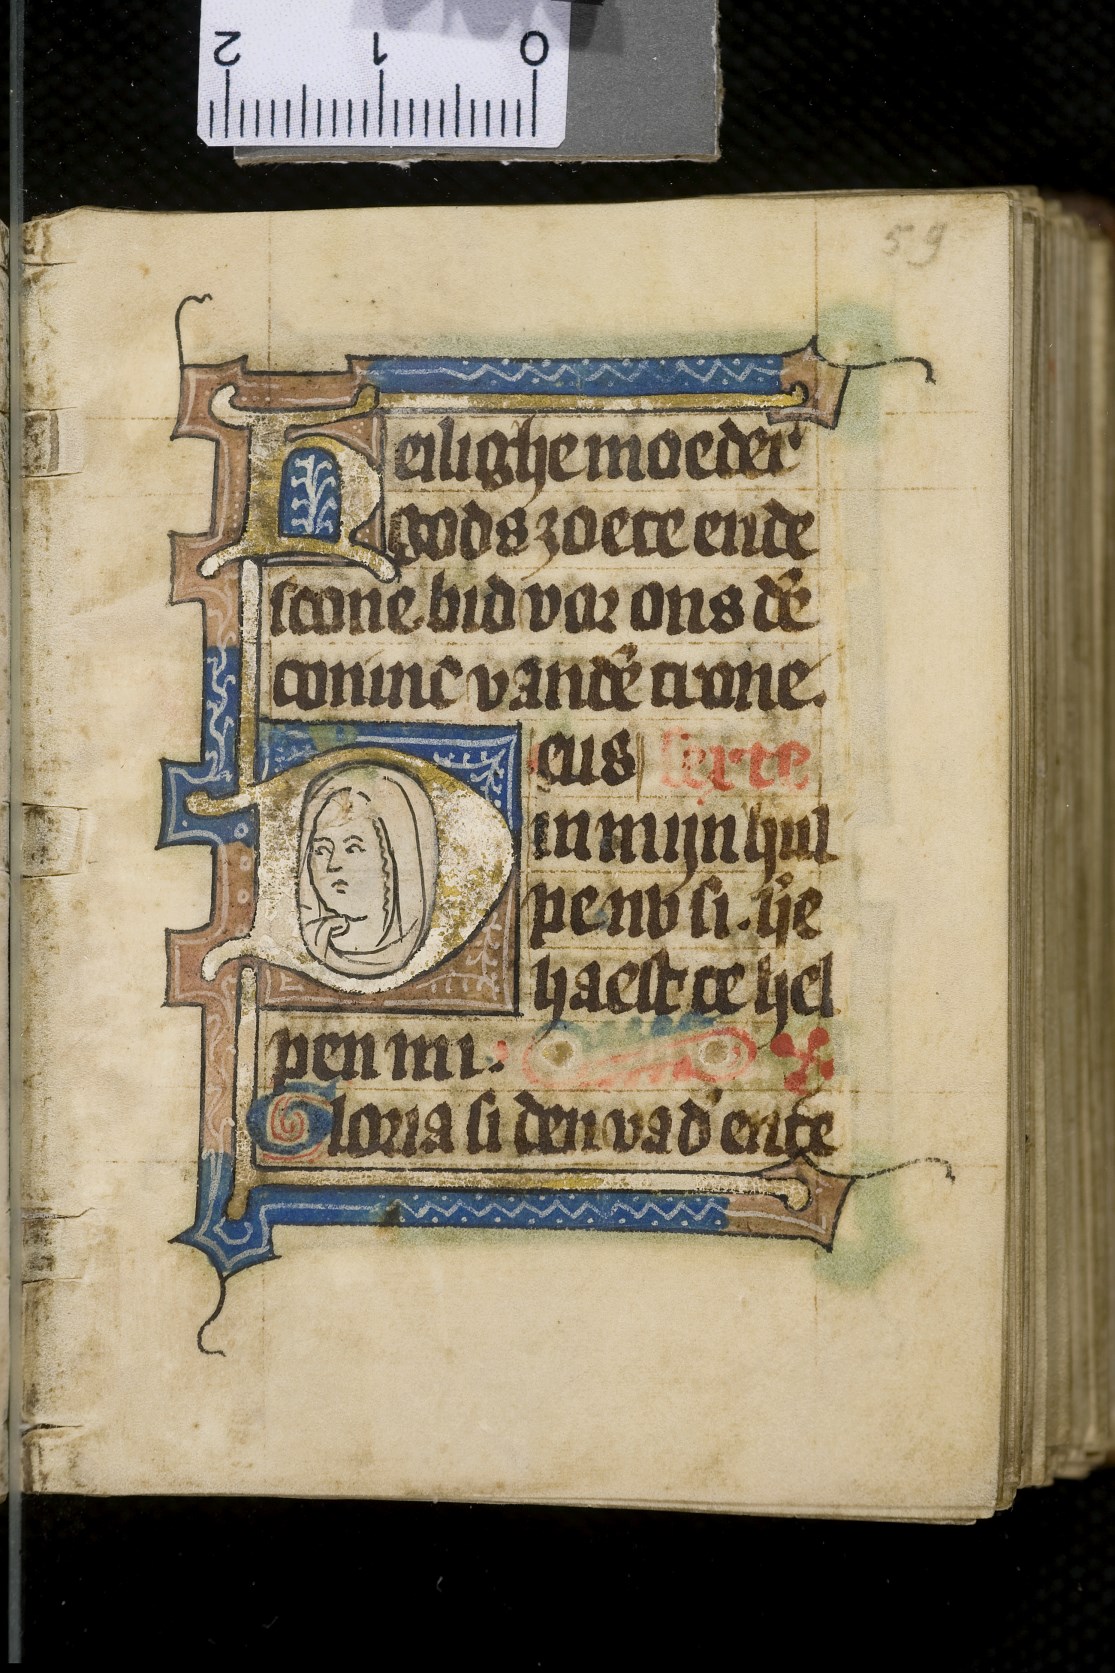 2 1 0
59
Heilighe moeder
gods zoete ende
scone bid vor ons dē
coninc van dē trone.
Deus Terte
in mijn hul
pe nv si. ɧe
haestte hel
pen mi.
Gloria si den vad' ente